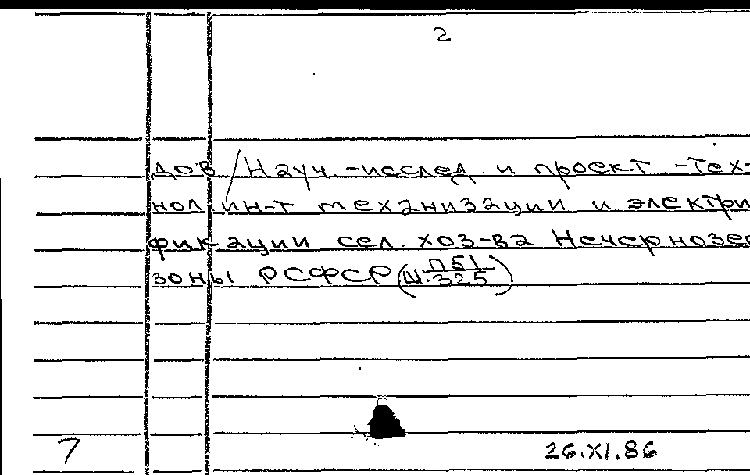 2
дов /Науч.-исслед и проект -тех-
нол ин-т механизации и электри
фикации сел. хоз-ва Нечернозе
зоны РСФСР (Ш. П51/325)
7
26.XI.86